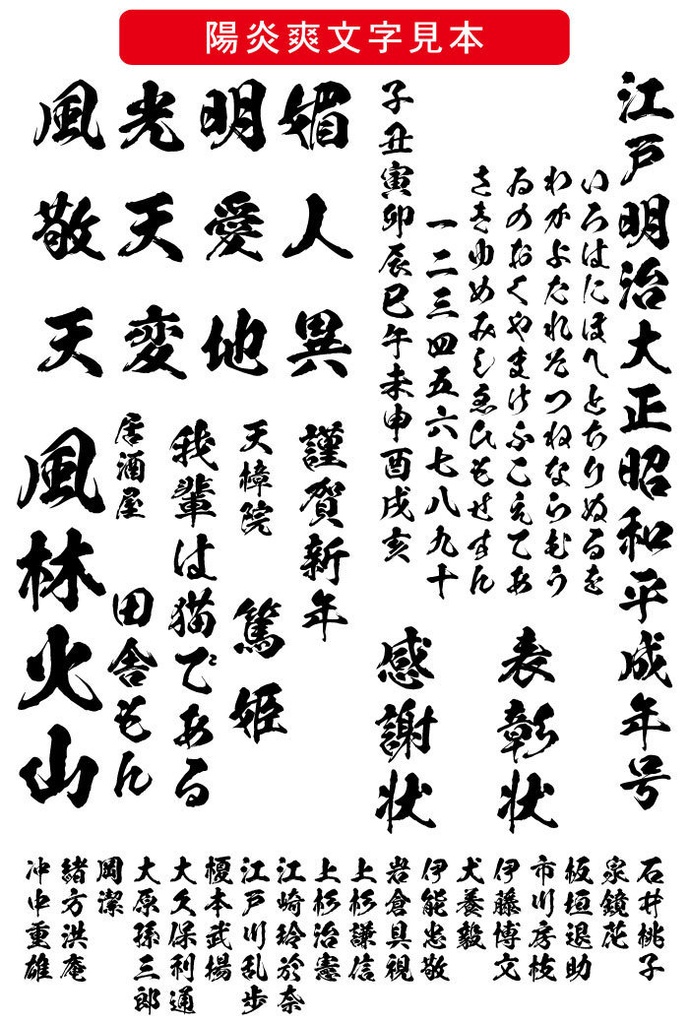 陽炎爽文字見本
江戸明治大正昭和平成年号
いろはにほへとちりぬるを
わかよたれそつねならむう
ゐのおくやまけふこえてあ
さきゆめみしゑひもせすん
一二三四五六七八九十
子丑寅卯辰巳午未申酉戌亥
表彰状
感謝状
風光明媚
敬天愛人
天変地異
謹賀新年
天樟院 篤姫
我輩は猫である
居酒屋 田舎もん
風林火山
石井桃子
泉鏡花
板垣退助
市川房枝
伊藤博文
犬養毅
伊能忠敬
岩倉具視
上杉謙信
上杉治憲
江崎玲於奈
江戸川乱歩
榎本武揚
大久保利通
大原孫三郎
岡潔
緒方洪庵
冲中重雄